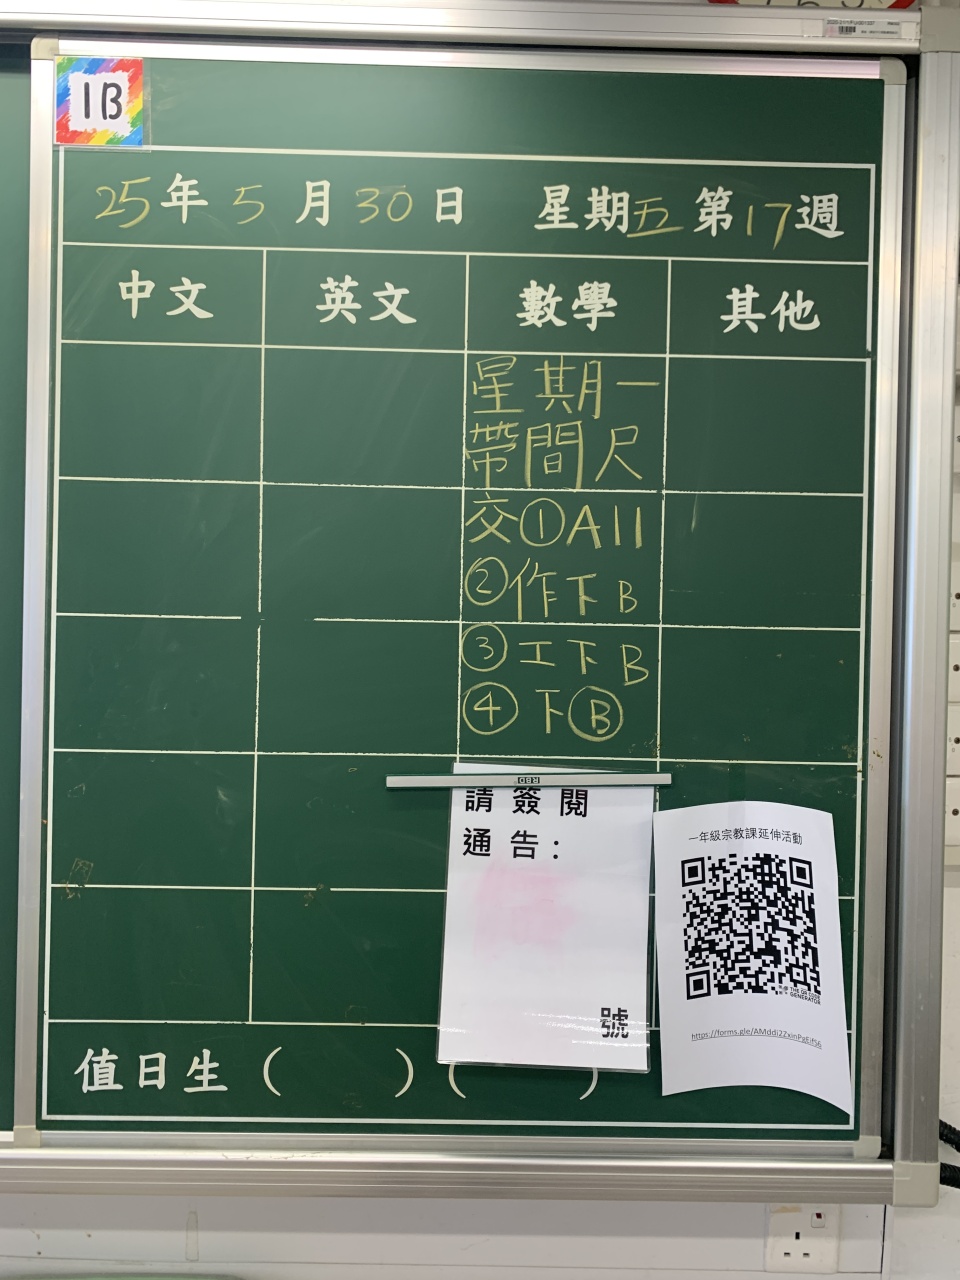 1B
25年5月30日 星期五第17週
中文 英文 數學 其他
星期一
帶間尺
交①A11
②作下B
③工下B
④下Ⓑ
RBD
請簽閱
通告：
號
一年級宗教課延伸活動
THE QR CODE
GENERATOR
值日生（ ）（ ）